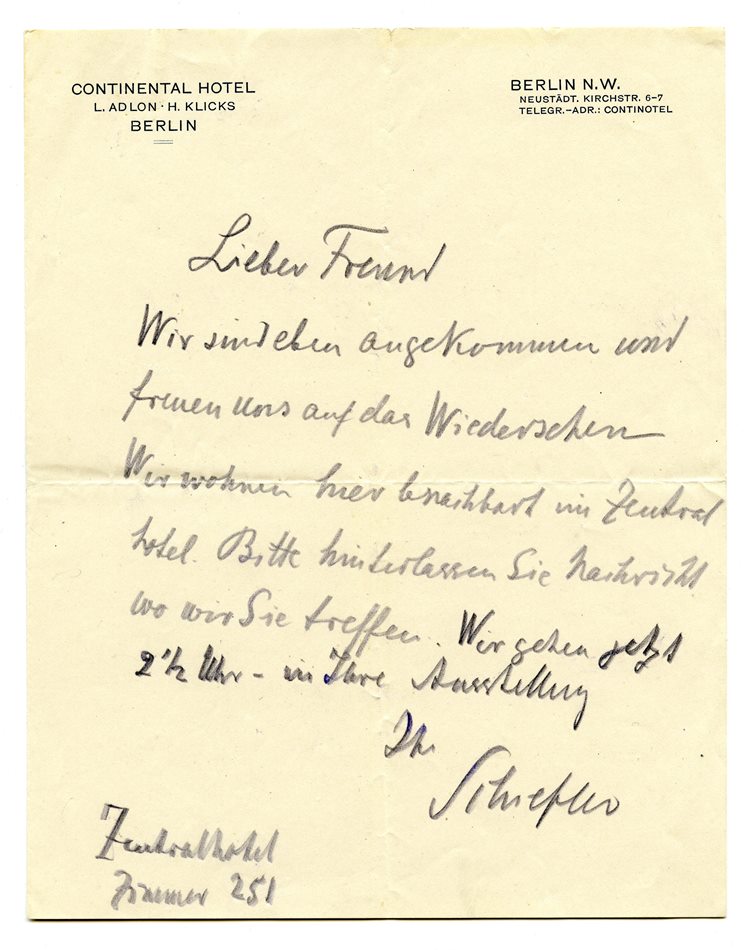 CONTINENTAL HOTEL
L. ADLON · H. KLICKS
BERLIN
BERLIN N.W.
NEUSTÄDT. KIRCHSTR. 6-7
TELEGR.-ADR.: CONTINOTEL
Lieber Freund
Wir sind eben angekommen und
freuen uns auf das Wiedersehen
Wir wohnen hier benachbart im Zentral
hotel. Bitte hinterlassen Sie Nachricht
wo wir Sie treffen. Wir gehen jetzt
2 1/2 Uhr - in Ihre Ausstellung
Ihr
Schiefler
Zentralhotel
Zimmer 251